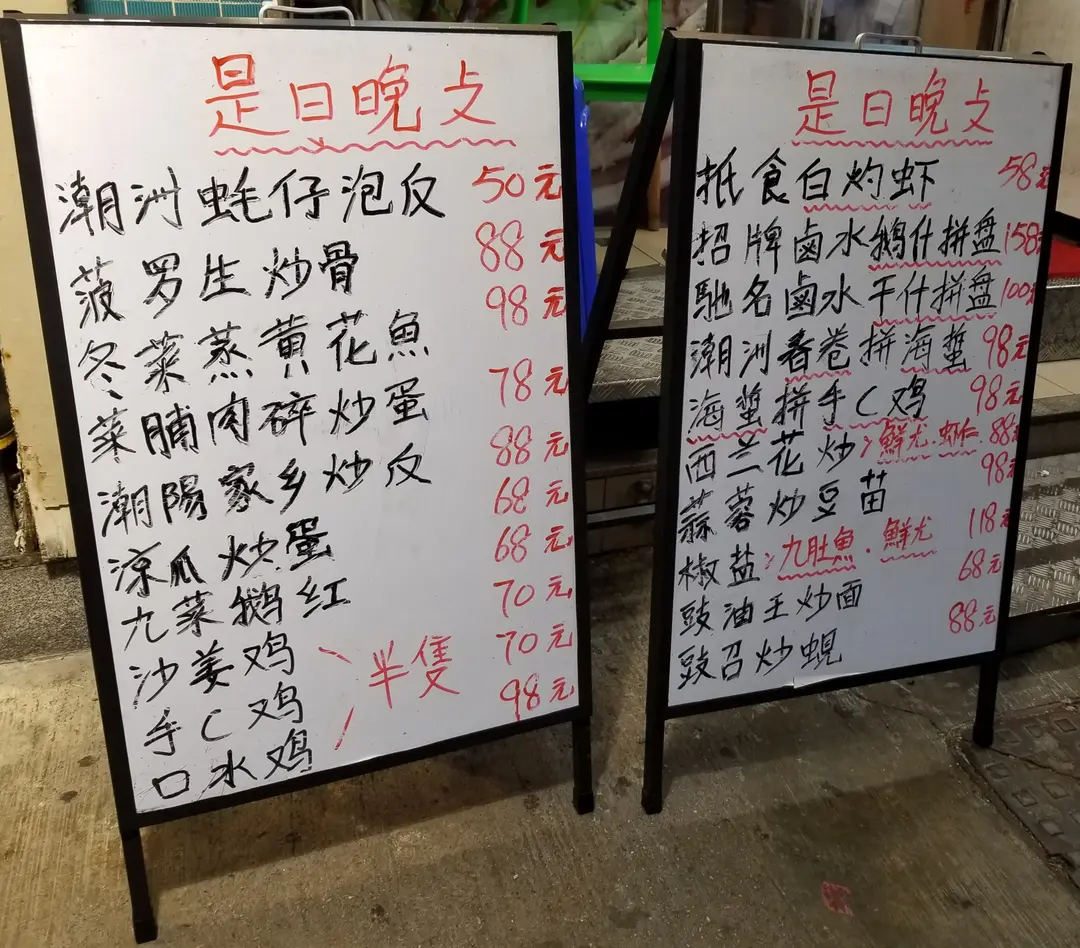 是日晚攴
潮洲蚝仔泡反 50元
菠罗生炒骨 88元
冬菜蒸黄花魚 98元
菜脯肉碎炒蛋 78元
潮陽家乡炒反 88元
涼瓜炒蛋 68元
九菜鹅红 68元
沙姜鸡 70元
手C鸡 半隻 70元
口水鸡 98元
是日晚攴
抵食白灼虾 58元
招牌鹵水鹅什拼盘 158元
馳名鹵水干什拼盘 100元
潮洲春卷拼海蜇 98元
海蜇拼手C鸡 98元
西兰花炒鮮尤.虾仁 88元
蒜蓉炒豆苗 98元
椒盐九肚魚.鮮尤 118元
豉油王炒面 68元
豉召炒蜆 88元